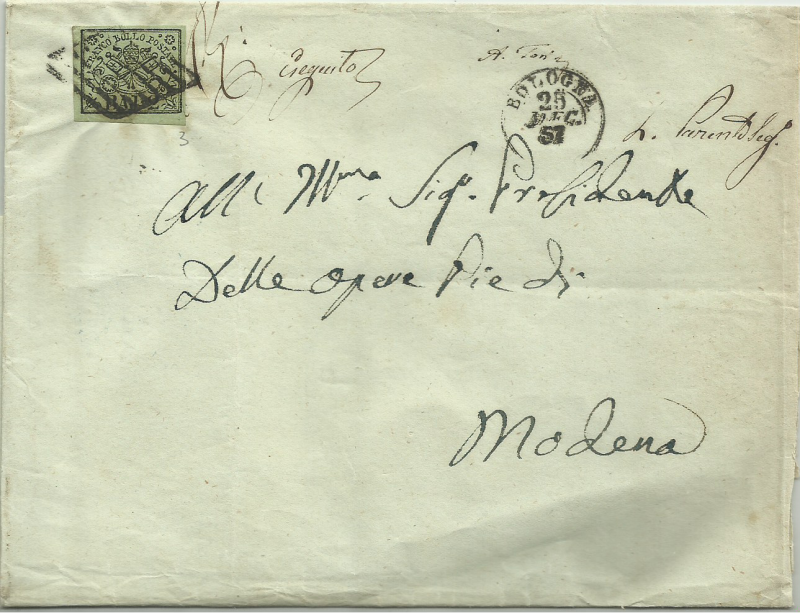 FRANCO BOLLO POSTALE
BAJ
Eseguito
BOLOGNA
25
DEC.
57
3
All' Ill.mo Sig.r Presidente
Delle Opere Pie di
Modena